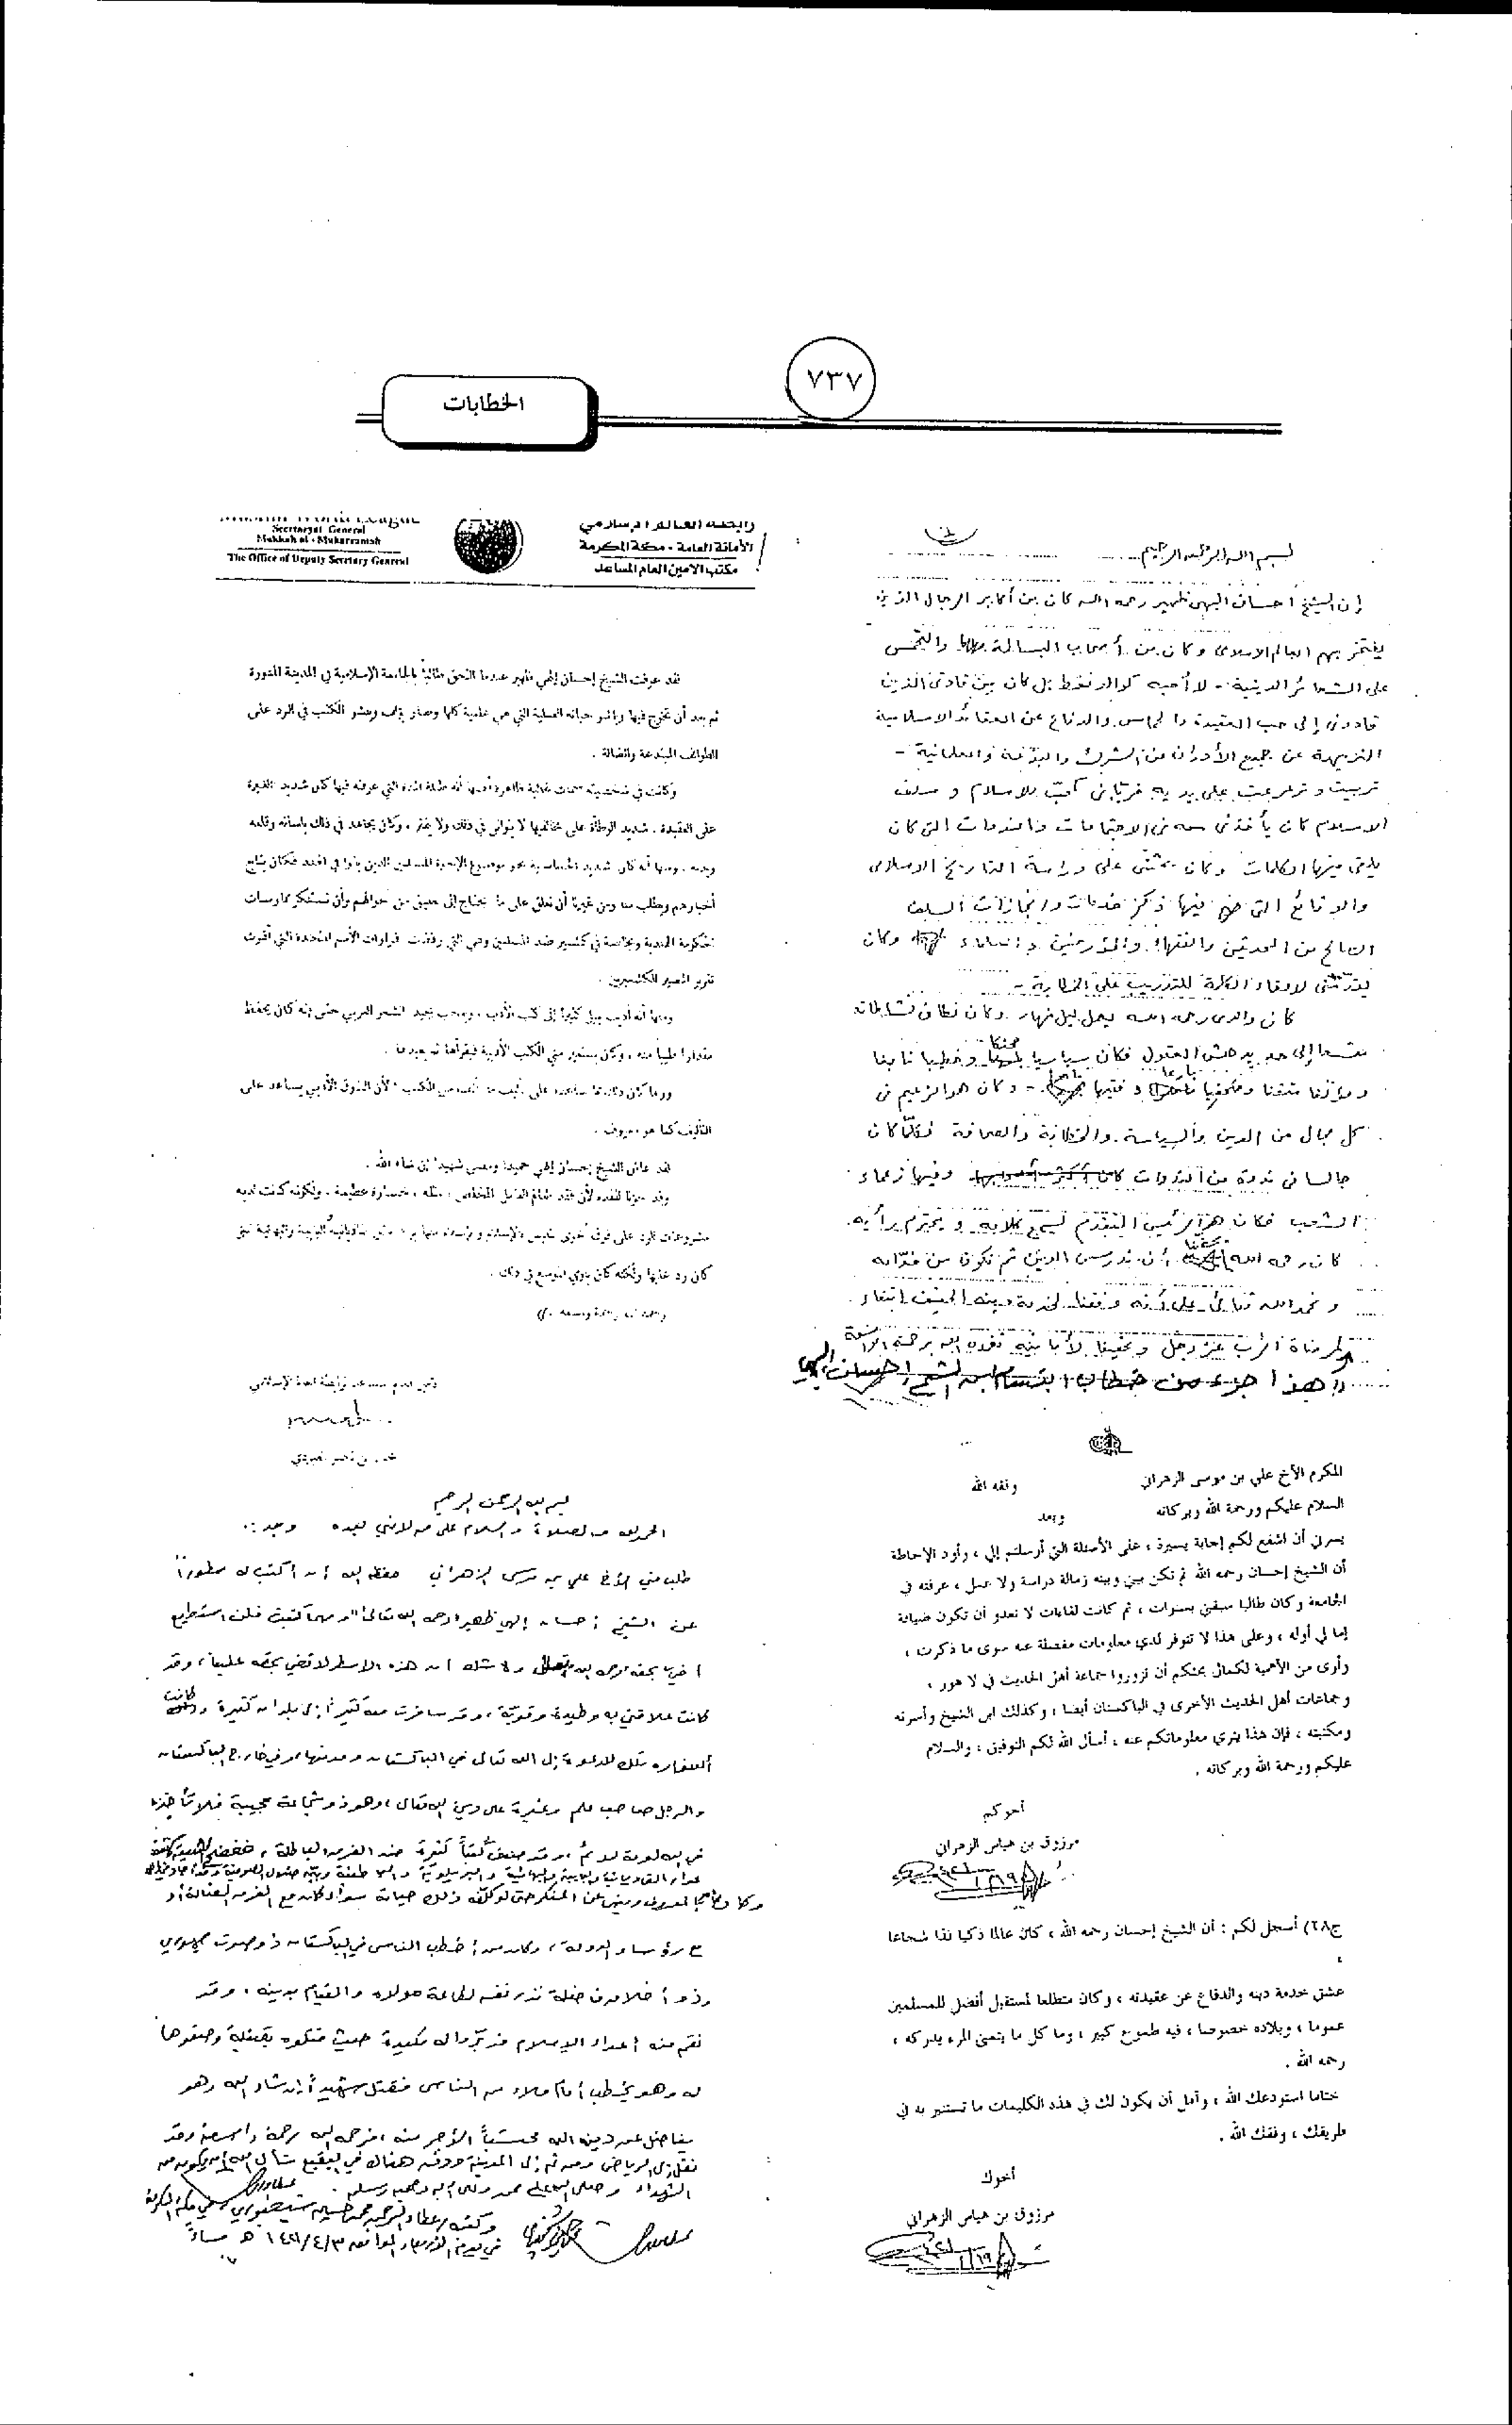 ٧٣٧
الخطابات
بسم الله الرحمن الرحيم
إن الشيخ احسان الهى ظهير رحمه الله كان من أكابر الرجال الذين
يفتخر بهم العالم الاسلامى وكان من أصحاب البسالة والتحمس
على الشعائر الدينية - لا أحبه كوالد فقط بل كان من قادتى الذين
قادونى إلى حب العقيدة والحماس والدفاع عن العقائد الاسلامية
النزيهة عن جميع الأدران من الشرك والبدعة والعلمانية -
تربيت وترعرعت على يديه فربانى كمحب للاسلام و
الاسلام كان يأخذنى معه فى الاجتماعات والندوات التى كان
يلقى فيها الكلمات وكان يحثنى على دراسة التاريخ الاسلامى
والوقائع التى فيها ذكر خدمات وانجازات السلف
الصالح من المحدثين والفقهاء والمؤرخين و وكان
لالقاء الكلمة للتدريب على الخطابة -
كان والدى رحمه الله يعمل ليل نهار وكان نطاق نشاطاته
متسعا إلى حد يدهش العقول فكان سياسيا محنكا وخطيبا نابغا
ومؤلفا متقنا وصحفيا بارعا و - وكان هو الزعيم فى
كل مجال من الدين والسياسة والخطابة والصحافة فكلما كان
جالسا فى ندوة من الندوات وفيها زعماء
الشعب فكان هو الرئيس المتقدم ليسمع كلامه و يحترم برأيه.
كان رحمه الله أن ندرس الدين ثم نكون من خدامه
و نحمد الله تعالى على أنه وفقنا لخدمة دينه الحنيف ابتغاء
لمرضاة الرب عز وجل وتحقيقا لأمانيه تغمده الله برحمته الواسعة
هذا جزء من خطاب ابتسام ابن الشيخ إحسان إلهي
المكرم الأخ علي بن موسى الزهراني وفقه الله
السلام عليكم ورحمة الله وبركاته وبعد
يسرني أن اشفع لكم إجابة يسيرة ، على الأسئلة التي أرسلتم إلي ، وأود الإحاطة
أن الشيخ إحسان رحمه الله لم تكن بيني وبينه زمالة دراسة ولا عمل ، عرفته في
الجامعة وكان طالبا سبقني بسنوات ، ثم كانت لقاءات لا تعدو أن تكون ضيافة
إما لي أوله ، وعلى هذا لا تتوفر لدي معلومات مفصلة عنه سوى ما ذكرت ،
وأرى من الأهمية لكمال بحثكم أن تزوروا جماعة أهل الحديث في لاهور ،
وجماعات أهل الحديث الأخرى في الباكستان أيضا ، وكذلك ابن الشيخ وأسرته
ومكتبته ، فإن هذا يثري معلوماتكم عنه ، أسأل الله لكم التوفيق ، والسلام
عليكم ورحمة الله وبركاته .
أخوكم
مرزوق بن هياس الزهراني
ج٢٨) أسجل لكم : أن الشيخ إحسان رحمه الله ، كان عالما ذكيا فذا شجاعا
،
عشق خدمة دينه والدفاع عن عقيدته ، وكان متطلعا لمستقبل أفضل للمسلمين
عموما ، وبلاده خصوصا ، فيه طموح كبير ، وما كل ما يتمنى المرء يدركه ،
رحمه الله .
ختاما استودعك الله ، وآمل أن يكون لك في هذه الكليمات ما تستنير به في
طريقك ، وفقك الله .
أخوك
مرزوق بن هياس الزهراني
رابطة العالم الإسلامي
الأمانة العامة - مكة المكرمة
مكتب الأمين العام المساعد
Secretaryat General
Makkah al - Mukarramah
The Office of Deputy Secretary General
لقد عرفت الشيخ إحسان إلهي ظهير عندما التحق طالباً بالجامعة الإسلامية في المدينة المنورة
ثم بعد أن تخرج فيها وباشر حياته العملية التي هي علمية كلها وصار يؤلف وينشر الكتب في الرد على
الطوائف المبتدعة والضالة .
وكانت في شخصيته سمات غالبة ظاهرة أنه طيلة المدة التي عرفته فيها كان شديد الغيرة
على العقيدة ، شديد الوطأة على مخالفيها لا يتوانى في ذلك ولا يفتر ، وكان يجاهد في ذلك بلسانه وقلمه
ويده ، ومنها أنه كان شديد الحساسية نحو موضوع الإخوة المسلمين الذين بقوا في الهند فكان يتابع
أخبارهم ويطلب منا ومن غيرنا أن نعلق على ما يحتاج إلى تعليق من أحوالهم وأن نستنكر ممارسات
الحكومة الهندية وبخاصة في كشمير ضد المسلمين وهي التي رفضت قرارات الأمم المتحدة التي أقرت
تقرير المصير للكشميريين .
ومنها أنه أديب يميل كثيراً إلى كتب الأدب ، ويحب جيد الشعر العربي حتى إنه كان يحفظ
مقداراً طيباً منه ، وكان يستعير مني الكتب الأدبية فيقرأها ثم يعيدها .
وربما كان ذلك مما ساعده على تأليف ما ألفه من الكتب ، لأن الذوق الأدبي يساعد على
التأليف كما هو معروف .
لقد عاش الشيخ إحسان إلهي حميدا ومضى شهيدا إن شاء الله .
وقد حزنا لفقده لأن فقد العالم العامل المخلص ، مثله ، خسارة عظيمة ، ولكونه كانت لديه
مشروعات للرد على فرق أخرى
كان رد عليها ولكنه كان ينوي التوسع في ذلك .
رحمه الله رحمة واسعة
الأمين العام المساعد لرابطة العالم الإسلامي
محمد بن ناصر العبودي
بسم الله الرحمن الرحيم
الحمد لله والصلاة والسلام على من لا نبي بعده وبعد :.
طلب مني الأخ علي بن موسى الزهراني حفظه الله أن أكتب له سطوراً
عن الشيخ إحسان إلهي ظهير رحمه الله تعالى ومهما كتبت فلن استطيع
أن أفي بحقه رحمه الله تعالى ولا شك أن هذه الاسطر لا تفي بحقه علينا ، وقد
كانت علاقتي به وطيدة وقوية ، وقد سافرت معه كثيراً إلى بلدان كثيرة وكانت
أسفاره تلك للدعوة إلى الله تعالى في الباكستان ومدنها ، وفي خارج الباكستان
والرجل صاحب علم وغيرة على دين الله تعالى ، وهو ذو شجاعة عجيبة فلا تأخذه
في الله لومة لائم ، وقد صنف كتباً كثيرة ضد الفرق الباطلة ،
القاديانية والبابية والبهائية والبريلوية
المعروف وينهى عن المنكر حتى لو كلفه ذلك حياته سواء كان مع الفرق الضالة أو
مع رؤساء الدولة ، وكان من أخطب الناس في الباكستان ذو صوت جهوري
وذو أخلاق فاضلة نذر نفسه لطاعة مولاه والقيام بدينه ، وقد
نقم منه أعداء الاسلام فدبروا له مكيدة حيث فتكوه بقنبلة وضعوها
له وهو يخطب أمام ملاء من الناس فقتل شهيداً إن شاء الله وهو
يناضل عن دين الله محتسباً الأجر منه ، فرحمه الله رحمة واسعة وقد
نقل إلى الرياض ومن ثم إلى المدينة ودفن هناك في البقيع نسأل الله أن يكون من
الشهداء وصلى الله على محمد وعلى آله وصحبه وسلم .
وكتبه عطاء الرحمن في مكة المكرمة
في يوم الأربعاء الموافق ١٤٢١/٤/٣ هـ مساءً